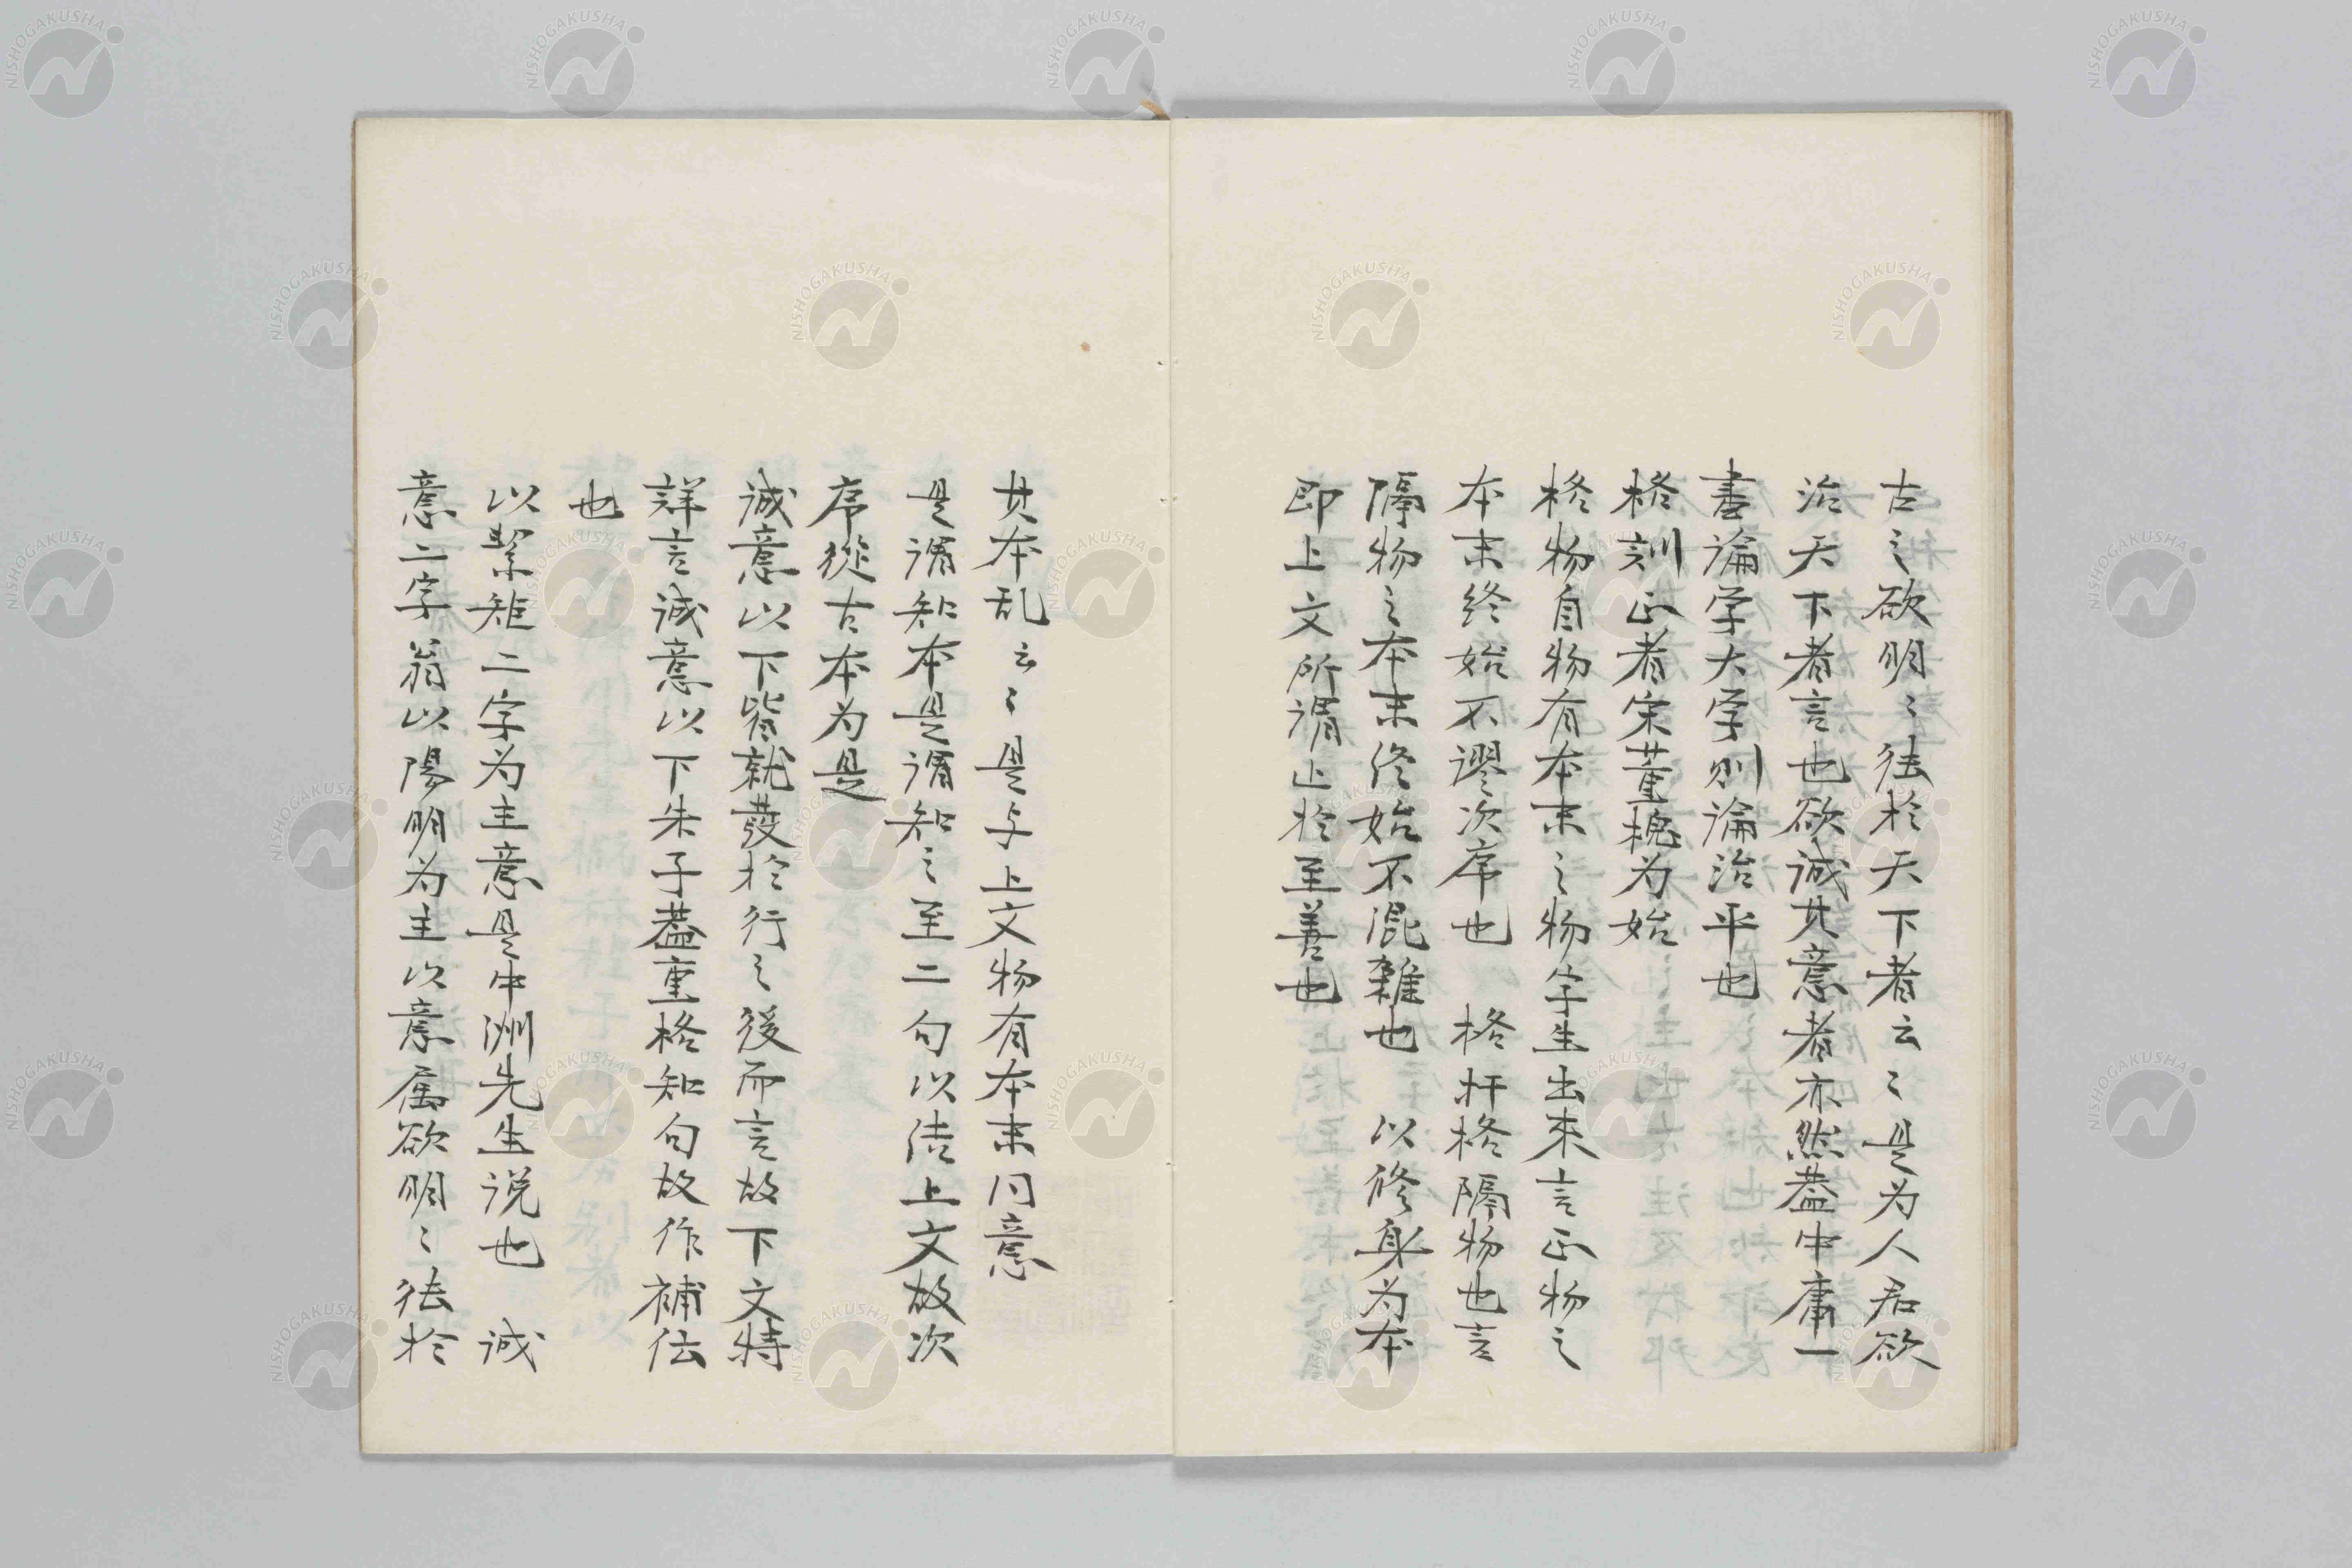 古之欲明〻徳於天下者云〻是为人君欲
治天下者言也欲誠其意者亦然蓋中庸一
書論学大学則論治平也
格訓正者宋董槐为始
格物自物有本末之物字生出来言正物之
本末終始不謬次序也　格扞格隔物也言
隔物之本末終始不混雜也　以修身为本
即上文所謂止於至善也
其本乱云〻是与上文物有本末同意
是謂知本是謂知之至二句以結上文故次
序從古本为是
誠意以下皆就發於行之後而言故下文特
詳言誠意以下朱子蓋重格知句故作補伝
也
以絜矩二字为主意是中洲先生説也　誠
意二字翁以陽明为主以意属欲明〻徳於
NISHOGAKUSHA